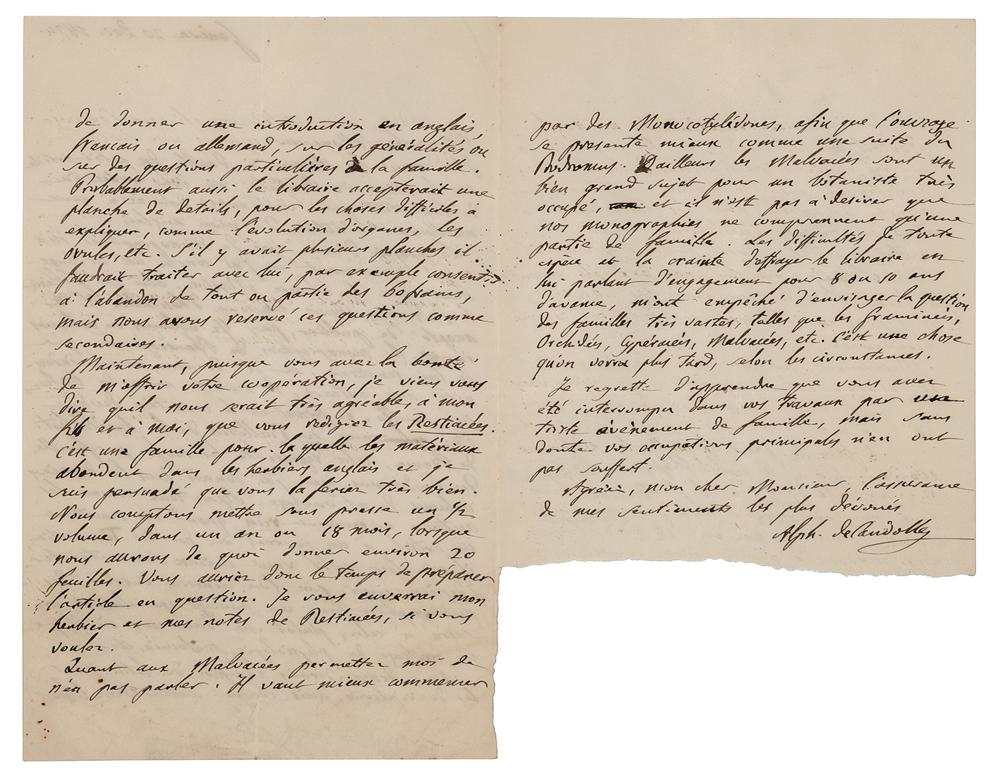 de donner une introduction en anglais,
français ou allemand, sur les généralités ou
sur des questions particulières à la famille.
Probablement aussi le libraire accepterait une
planche de détails, pour les choses difficiles à
expliquer, comme l'évolution d'organes, les
ovules, etc. S'il y avait plusieurs planches il
faudrait traiter avec lui, par exemple consentir
à l'abandon de tout ou partie des 60 francs,
mais nous avons réservé ces questions comme
secondaires.
Maintenant, puisque vous avez la bonté
de m'offrir votre coopération, je viens vous
dire qu'il nous serait très agréable, à mon
fils et à moi, que vous rédigiez les Restiacées.
C'est une famille pour laquelle les matériaux
abondent dans les herbiers anglais et je
suis persuadé que vous la feriez très bien.
Nous comptons mettre sous presse un 1/2
volume, dans un an ou 18 mois, lorsque
nous aurons de quoi donner environ 20
feuilles. Vous auriez donc le temps de préparer
l'article en question. Je vous enverrai mon
herbier et mes notes de Restiacées, si vous
voulez.
Quant aux Malvacées permettez moi de
n'en pas parler. Il vaut mieux commencer
par des Monocotylédones, afin que l'ouvrage
se présente mieux comme une suite du
Prodromus. D'ailleurs les Malvacées sont un
bien grand sujet pour un botaniste très
occupé, et il n'est pas à désirer que
nos monographies ne comprennent qu'une
partie de famille. Les difficultés de toute
espèce et la crainte d'effrayer le libraire en
lui parlant d'engagement pour 8 ou 10 ans
d'avance, m'ont empêché d'envisager la question
des familles très vastes, telles que les Graminées,
Orchidées, Cypéracées, Malvacées, etc. C'est une chose
qu'on verra plus tard, selon les circonstances.
Je regrette d'apprendre que vous avez
été interrompu dans vos travaux par un
triste évènement de famille, mais sans
doute vos occupations principales n'en ont
pas souffert.
Agréez, mon cher Monsieur, l'assurance
de mes sentiments les plus dévoués
Alph. de Candolle